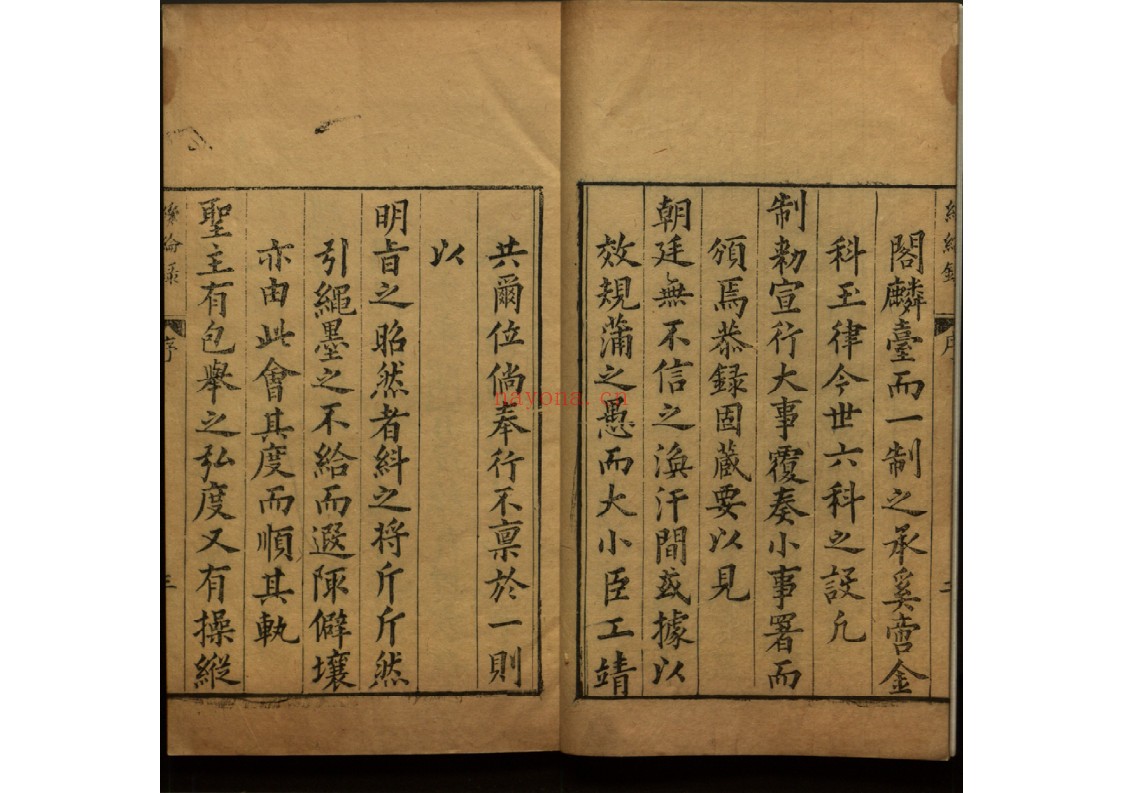 閣麟臺而一制之承奚啻金
科玉律今世六科之設凡
制勅宣行大事覆奏小事署而
頒焉恭錄固藏要以見
朝廷無不信之渙汗間或據以
效規蒲之愚而大小臣工靖
共爾位倘奉行不禀於一則
以
明旨之昭然者糾之将斤斤然
引繩墨之不給而遐陬僻壤
亦由此會其度而順其軌
聖主有包舉之弘度又有操縱
絲綸錄
序
三
nayona.cn